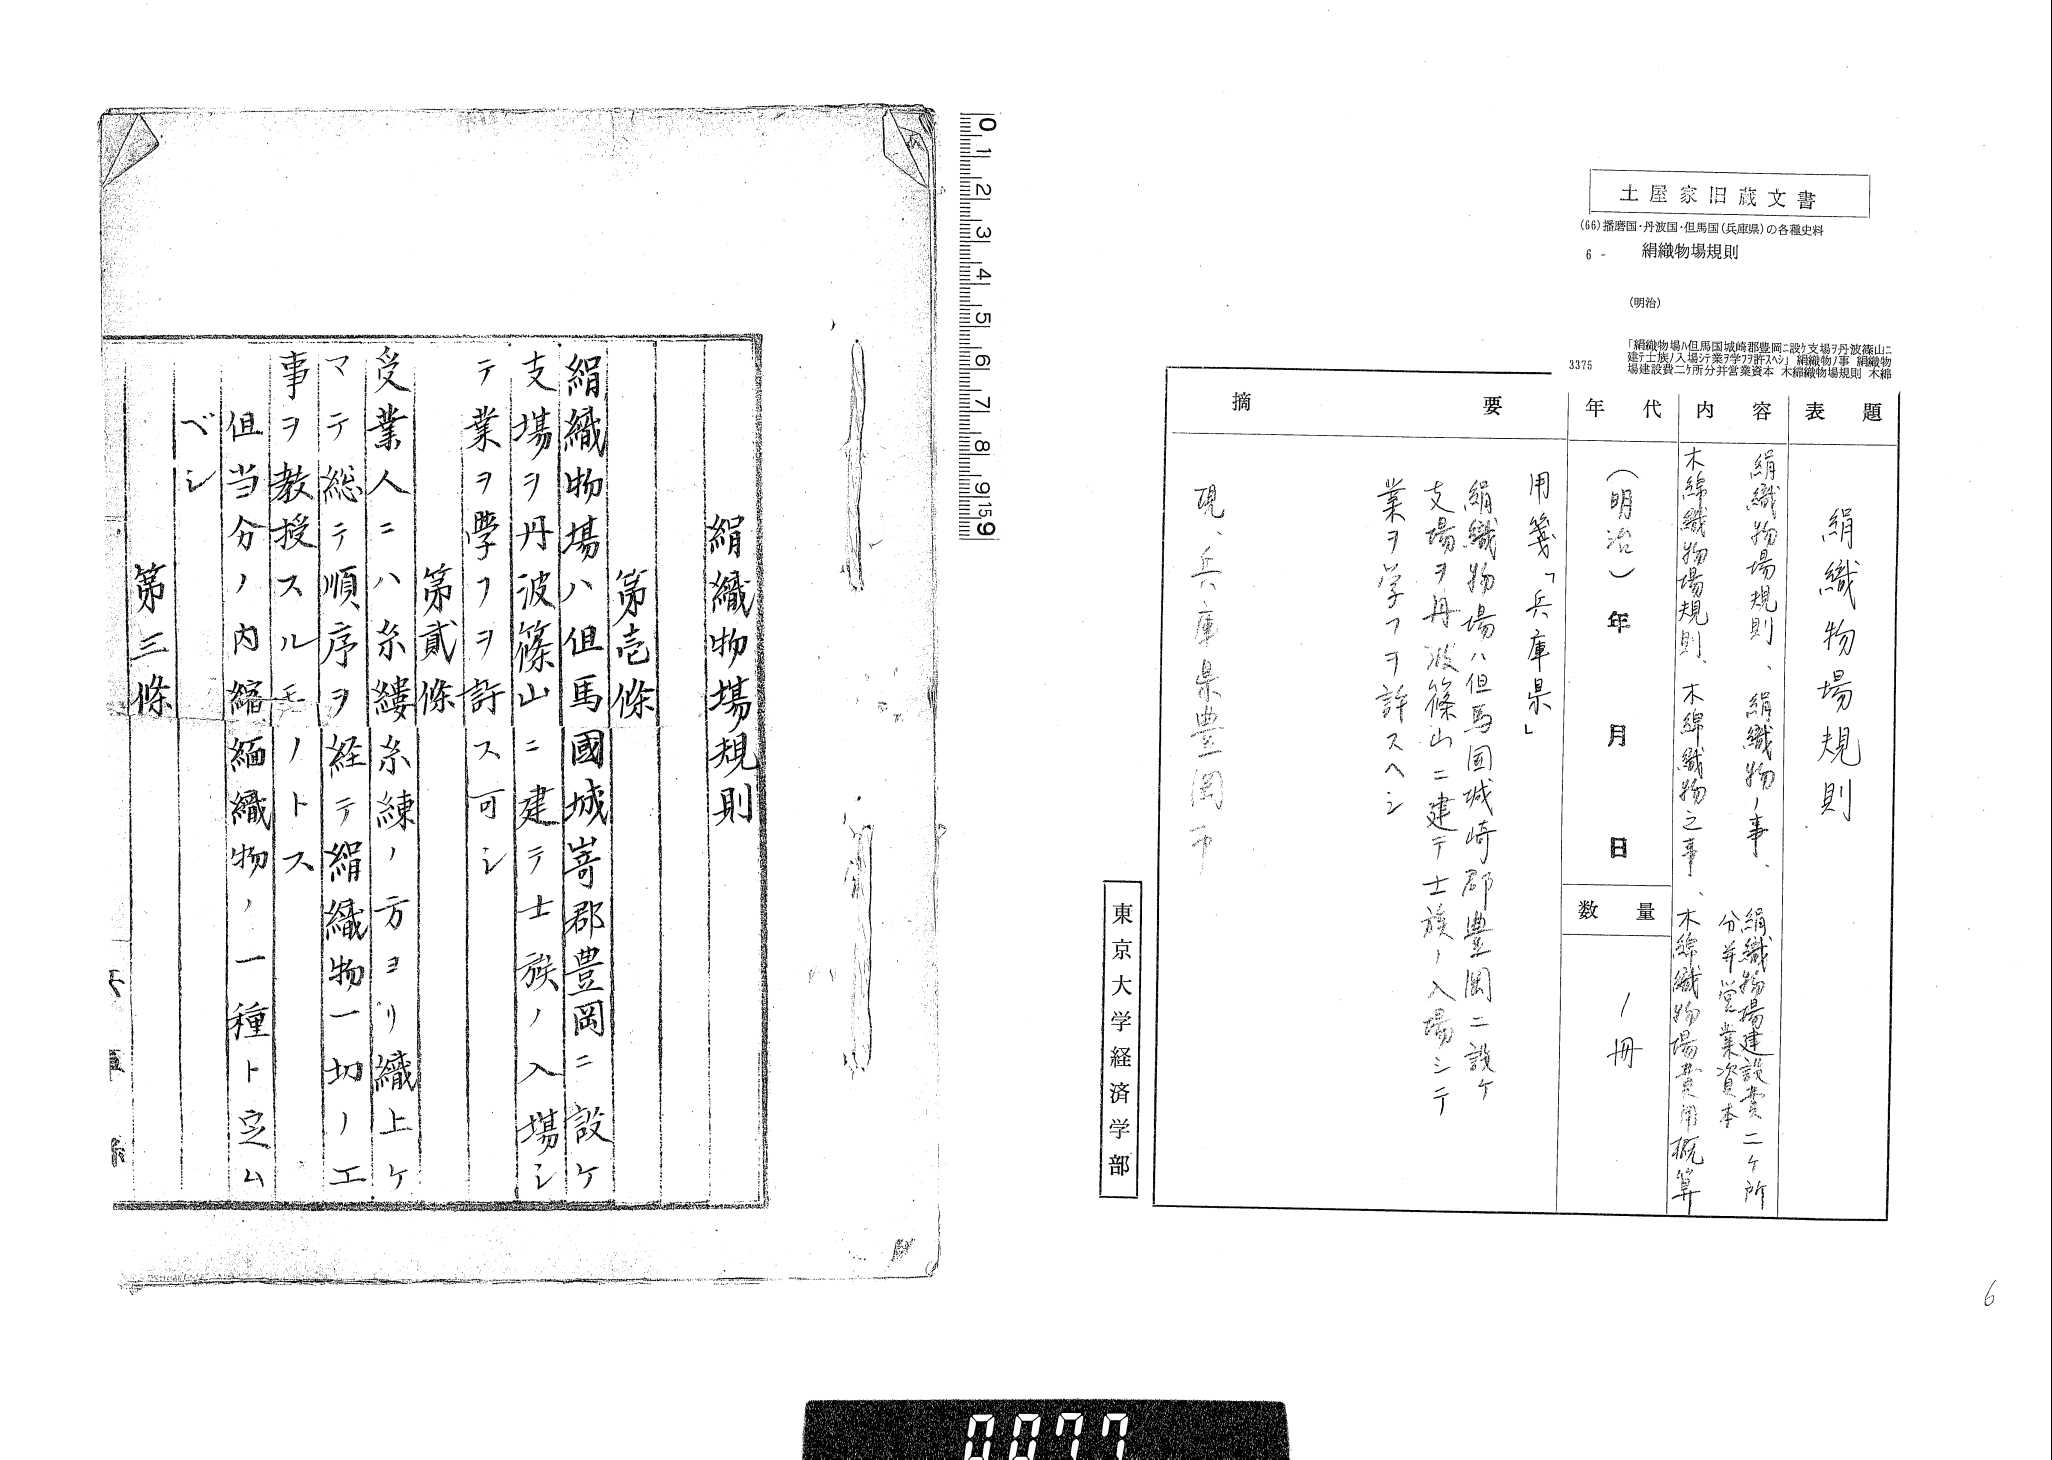 土屋家旧蔵文書
(66)播磨国・丹波国・但馬国(兵庫県)の各種史料
6 -　絹織物場規則
(明治)
3375
「絹織物場ハ但馬国城崎郡豊岡ニ設ケ支場ヲ丹波篠山ニ
建テ士族ノ入場シテ業ヲ学フヲ許スヘシ」 絹織物ノ事 絹織物
場建設費二ケ所分并営業資本 木綿織物場規則 木綿
表題
絹織物場規則
内容
絹織物場規則、絹織物ノ事、絹織物場建設費二ケ所
分并営業資本
木綿織物場規則、木綿織物之事、木綿織物場費用概算
年代
(明治)年月日
数量
1冊
摘要
用箋「兵庫県」
絹織物場ハ但馬国城崎郡豊岡ニ設ケ
支場ヲ丹波篠山ニ建テ士族ノ入場シテ
業ヲ学フヲ許スヘシ
現、兵庫県豊岡市
東京大学経済学部
6
0 1 2 3 4 5 6 7 8 9 15 9
絹織物場規則
第壱條
絹織物場ハ但馬國城嵜郡豊岡ニ設ケ
支場ヲ丹波篠山ニ建テ士族ノ入場シ
テ業ヲ學フヲ許ス可シ
第貳條
受業人ニハ糸縷糸練ノ方ヨリ織上ケ
マテ総テ順序ヲ経テ絹織物一切ノ工
事ヲ教授スルモノトス
但当分ノ内縮緬織物ノ一種ト定ム
ベシ
第三條
0077